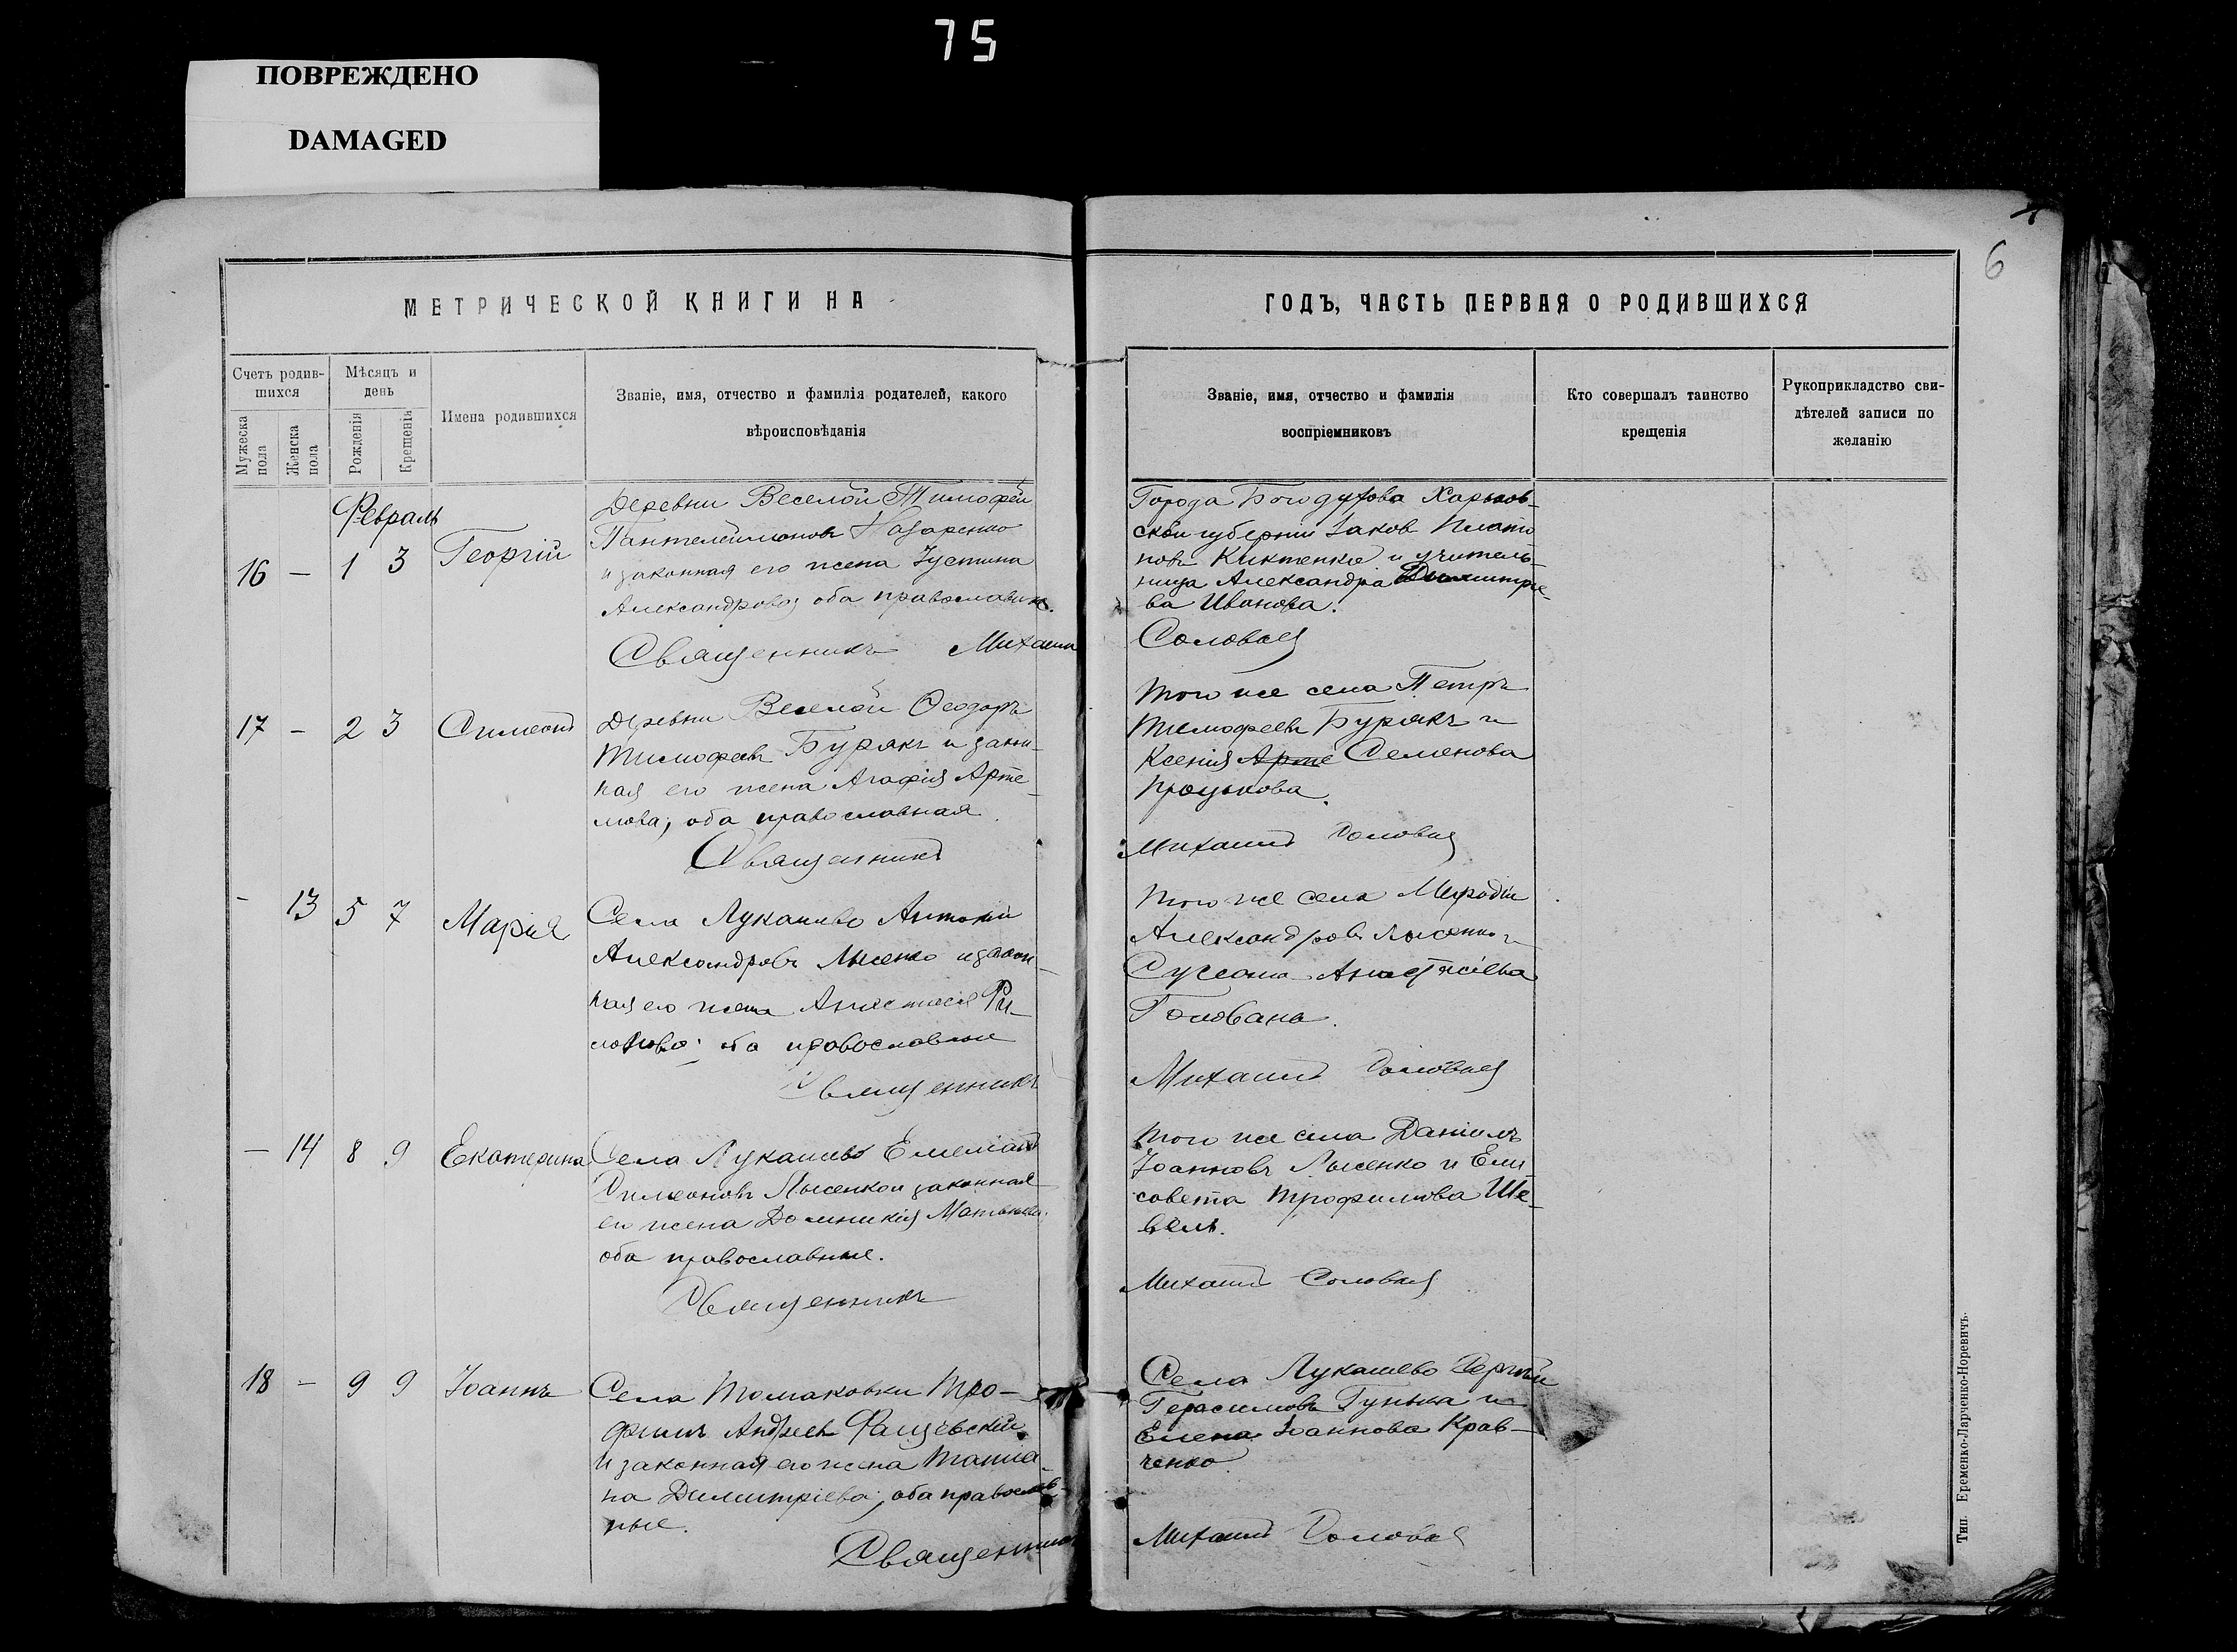 75
ПОВРЕЖДЕНО
DAMAGED
6
МЕТРИЧЕСКОЙ КНИГИ НА
ГОДЪ, ЧАСТЬ ПЕРВАЯ О РОДИВШИХСЯ
Счетъ родив-
шихся
Мужеска
пола
Женска
пола
Мѣсяцъ и
день
Рожденія
Крещенія
Имена родившихся
Званіе, имя, отчество и фамилія родителей, какого
вѣроисповѣданія
Званіе, имя, отчество и фамилія
воспріемниковъ
Кто совершалъ таинство
крещенія
Рукоприкладство сви-
дѣтелей записи по
желанію
Февраль
16 – 1 3 Георгій
Деревни Веселой Тимофей
Пантелеимоновъ Назаренко
и законная его жена Іустина
Александрова; оба православные.
Священникъ Михаилъ
Города Богодухова Харьков-
ской губерніи Іаковъ Плато
новъ Киктенко и учитель-
ница Александра Димитріе-
ва Иванова.
Соловьев
17 – 2 3 Симеонъ
Деревни Веселой Ѳеодоръ
Тимофеевъ Бурякъ и закон-
ная его жена Агафія Арте-
мова; оба православная
Священникъ
того же села Петръ
Тимофеевъ Бурякъ и
Ксенія Арте Семенова
Процькова.
Михаилъ Соловьев
– 13 5 7 Марія
Села Лукашево Антоній
Александровъ Лысенко и закон-
ная его жена Анастасія Фи-
; оба православные
Священникъ
того же села Мефодій
Александровъ Лысенко и
Сусанна
Голована.
Михаилъ Соловьев
– 14 8 9 Екатерина
Села Лукашево Емеліанъ
Симеоновъ Лысенко и законная
его жена Домникія Матвѣева
оба православные.
Священникъ
того же села Даніилъ
Іоанновъ Лысенко и Ели
савета Трофимова Ше-
вель.
Михаилъ Соловьев
18 – 9 9 Іоаннъ
Села Томаковки Тро-
фимъ Андреевъ Фащевскій
и законная его жена Татіа-
на Димитріева; оба православ-
ные.
Священникъ
Села Лукашево Сергій
Герасимовъ Гунька и
Елена Іоаннова Крав-
ченко
Михаилъ Соловьев
Тип. Еременко-Ларченко-Норевичъ.